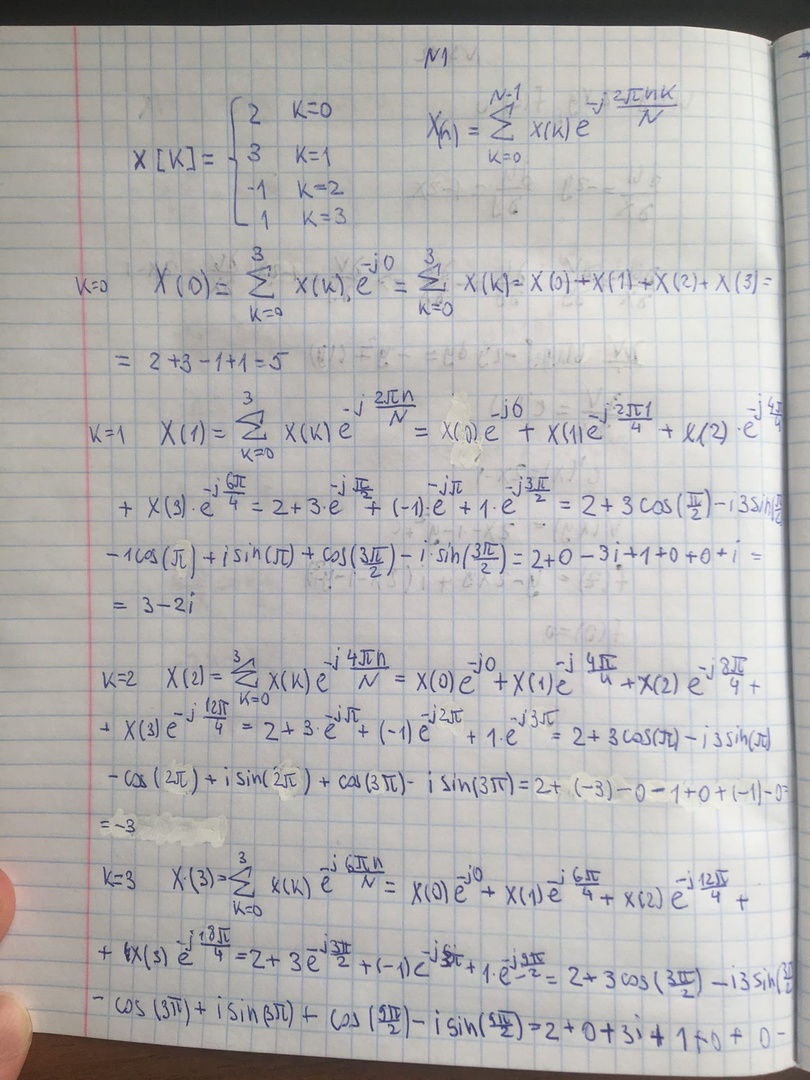 N1
x[K] = { 2 K=0
3 K=1
-1 K=2
1 K=3
X(n) = ∑_{K=0}^{N-1} x(K) e^{-j 2πnK/N}
K=0 X(0) = ∑_{K=0}^{3} x(K) e^{-j0} = ∑_{K=0}^{3} x(K) = x(0)+x(1)+x(2)+x(3) =
= 2+3-1+1=5
K=1 X(1) = ∑_{K=0}^{3} x(K) e^{-j 2πn/N} = x(0)e^{-j0} + x(1)e^{-j 2π1/4} + x(2)·e^{-j 4π/4}
+ x(3)·e^{-j 6π/4} = 2+3·e^{-j π/2} + (-1)·e^{-jπ} + 1·e^{-j 3π/2} = 2+3cos(π/2) - i3sin(π/2)
-1cos(π) + i sin(π) + cos(3π/2) - i·sin(3π/2) = 2+0-3i+1+0+0+i =
= 3-2i
K=2 X(2) = ∑_{K=0}^{3} x(K) e^{-j 4πn/N} = x(0)e^{-j0} + x(1)e^{-j 4π/4} + x(2) e^{-j 8π/4} +
+ x(3)e^{-j 12π/4} = 2+3·e^{-jπ} + (-1)e^{-j2π} + 1·e^{-j3π} = 2+3cos(π) - i3sin(π)
-cos(2π) + i sin(2π) + cos(3π) - i sin(3π) = 2+ (-3) - 0 - 1+0+(-1)-0=
= -3
K=3 X·(3) = ∑_{K=0}^{3} x(K) e^{-j 6πn/N} = x(0)e^{-j0} + x(1)e^{-j 6π/4} + x(2)e^{-j 12π/4} +
+ x(3) e^{-j 18π/4} = 2+3e^{-j 3π/2} + (-1)e^{-j3π} + 1·e^{-j 9π/2} = 2+3cos(3π/2) - i3sin(3π/2)
- cos(3π) + i sin(3π) + cos(9π/2) - i sin(9π/2) = 2+0+3i+1+0+0-